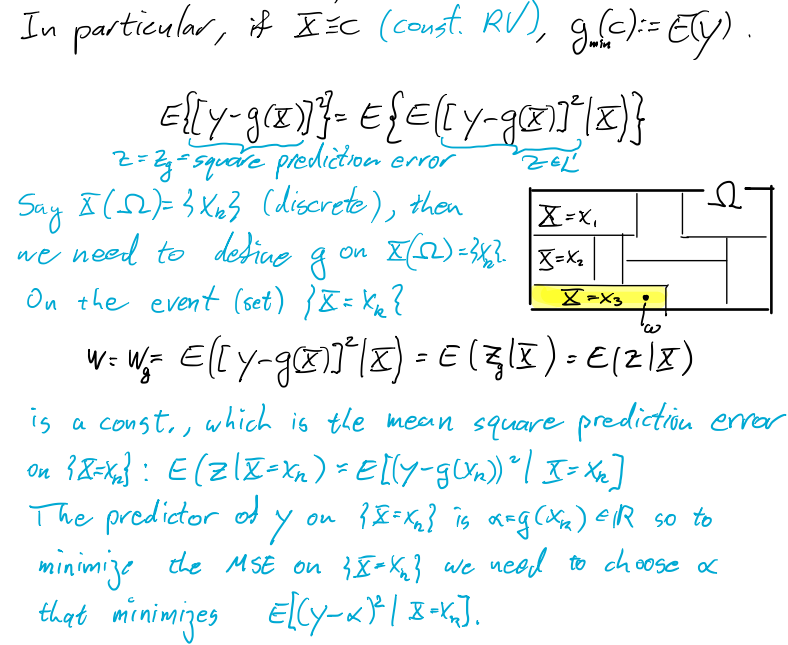 In particular, if X≡c (const. RV), g_min(c):= E(y).
E{[y-g(X)]²}= E{E([y-g(X)]²|X)}
z = z_g = square prediction error z∈L¹
Say X(Ω)={x_k} (discrete), then
we need to define g on X(Ω)={x_k}.
On the event (set) {X=x_k}
Ω
X=x₁
X=x₂
X=x₃
ω
W= W_g= E([y-g(X)]²|X) = E(z_g|X) = E(z|X)
is a const., which is the mean square prediction error
on {X=x_k}: E(z|X=x_k) = E[(y-g(x_k))²| X=x_k]
The predictor of y on {X=x_k} is α=g(x_k)∈ℝ so to
minimize the MSE on {X=x_k} we need to choose α
that minimizes E[(y-α)²| X=x_k].